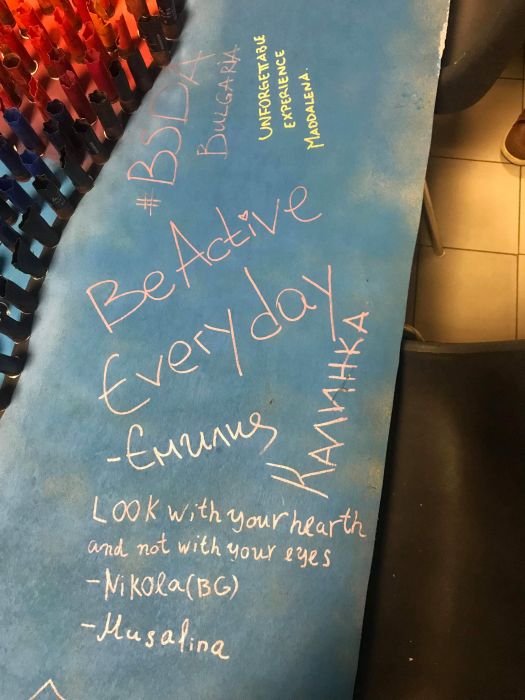 #BSDA
BULGARIA
UNFORGETTABLE
EXPERIENCE
MADDALENA.
BeActive
Everyday
-Емилия
КАЛИНКА
LOOK with your hearth
and not with your eyes
-Nikola(BG)
-Musalina